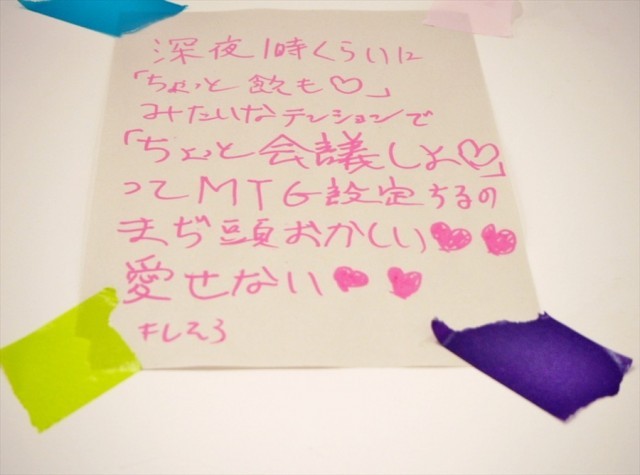 深夜1時くらいに
「ちょっと飲も♡」
みたいなテンションで
「ちょっと会議しよ♡」
ってMTG設定するの
まぢ頭おかしい♥♥
愛せない♥♥